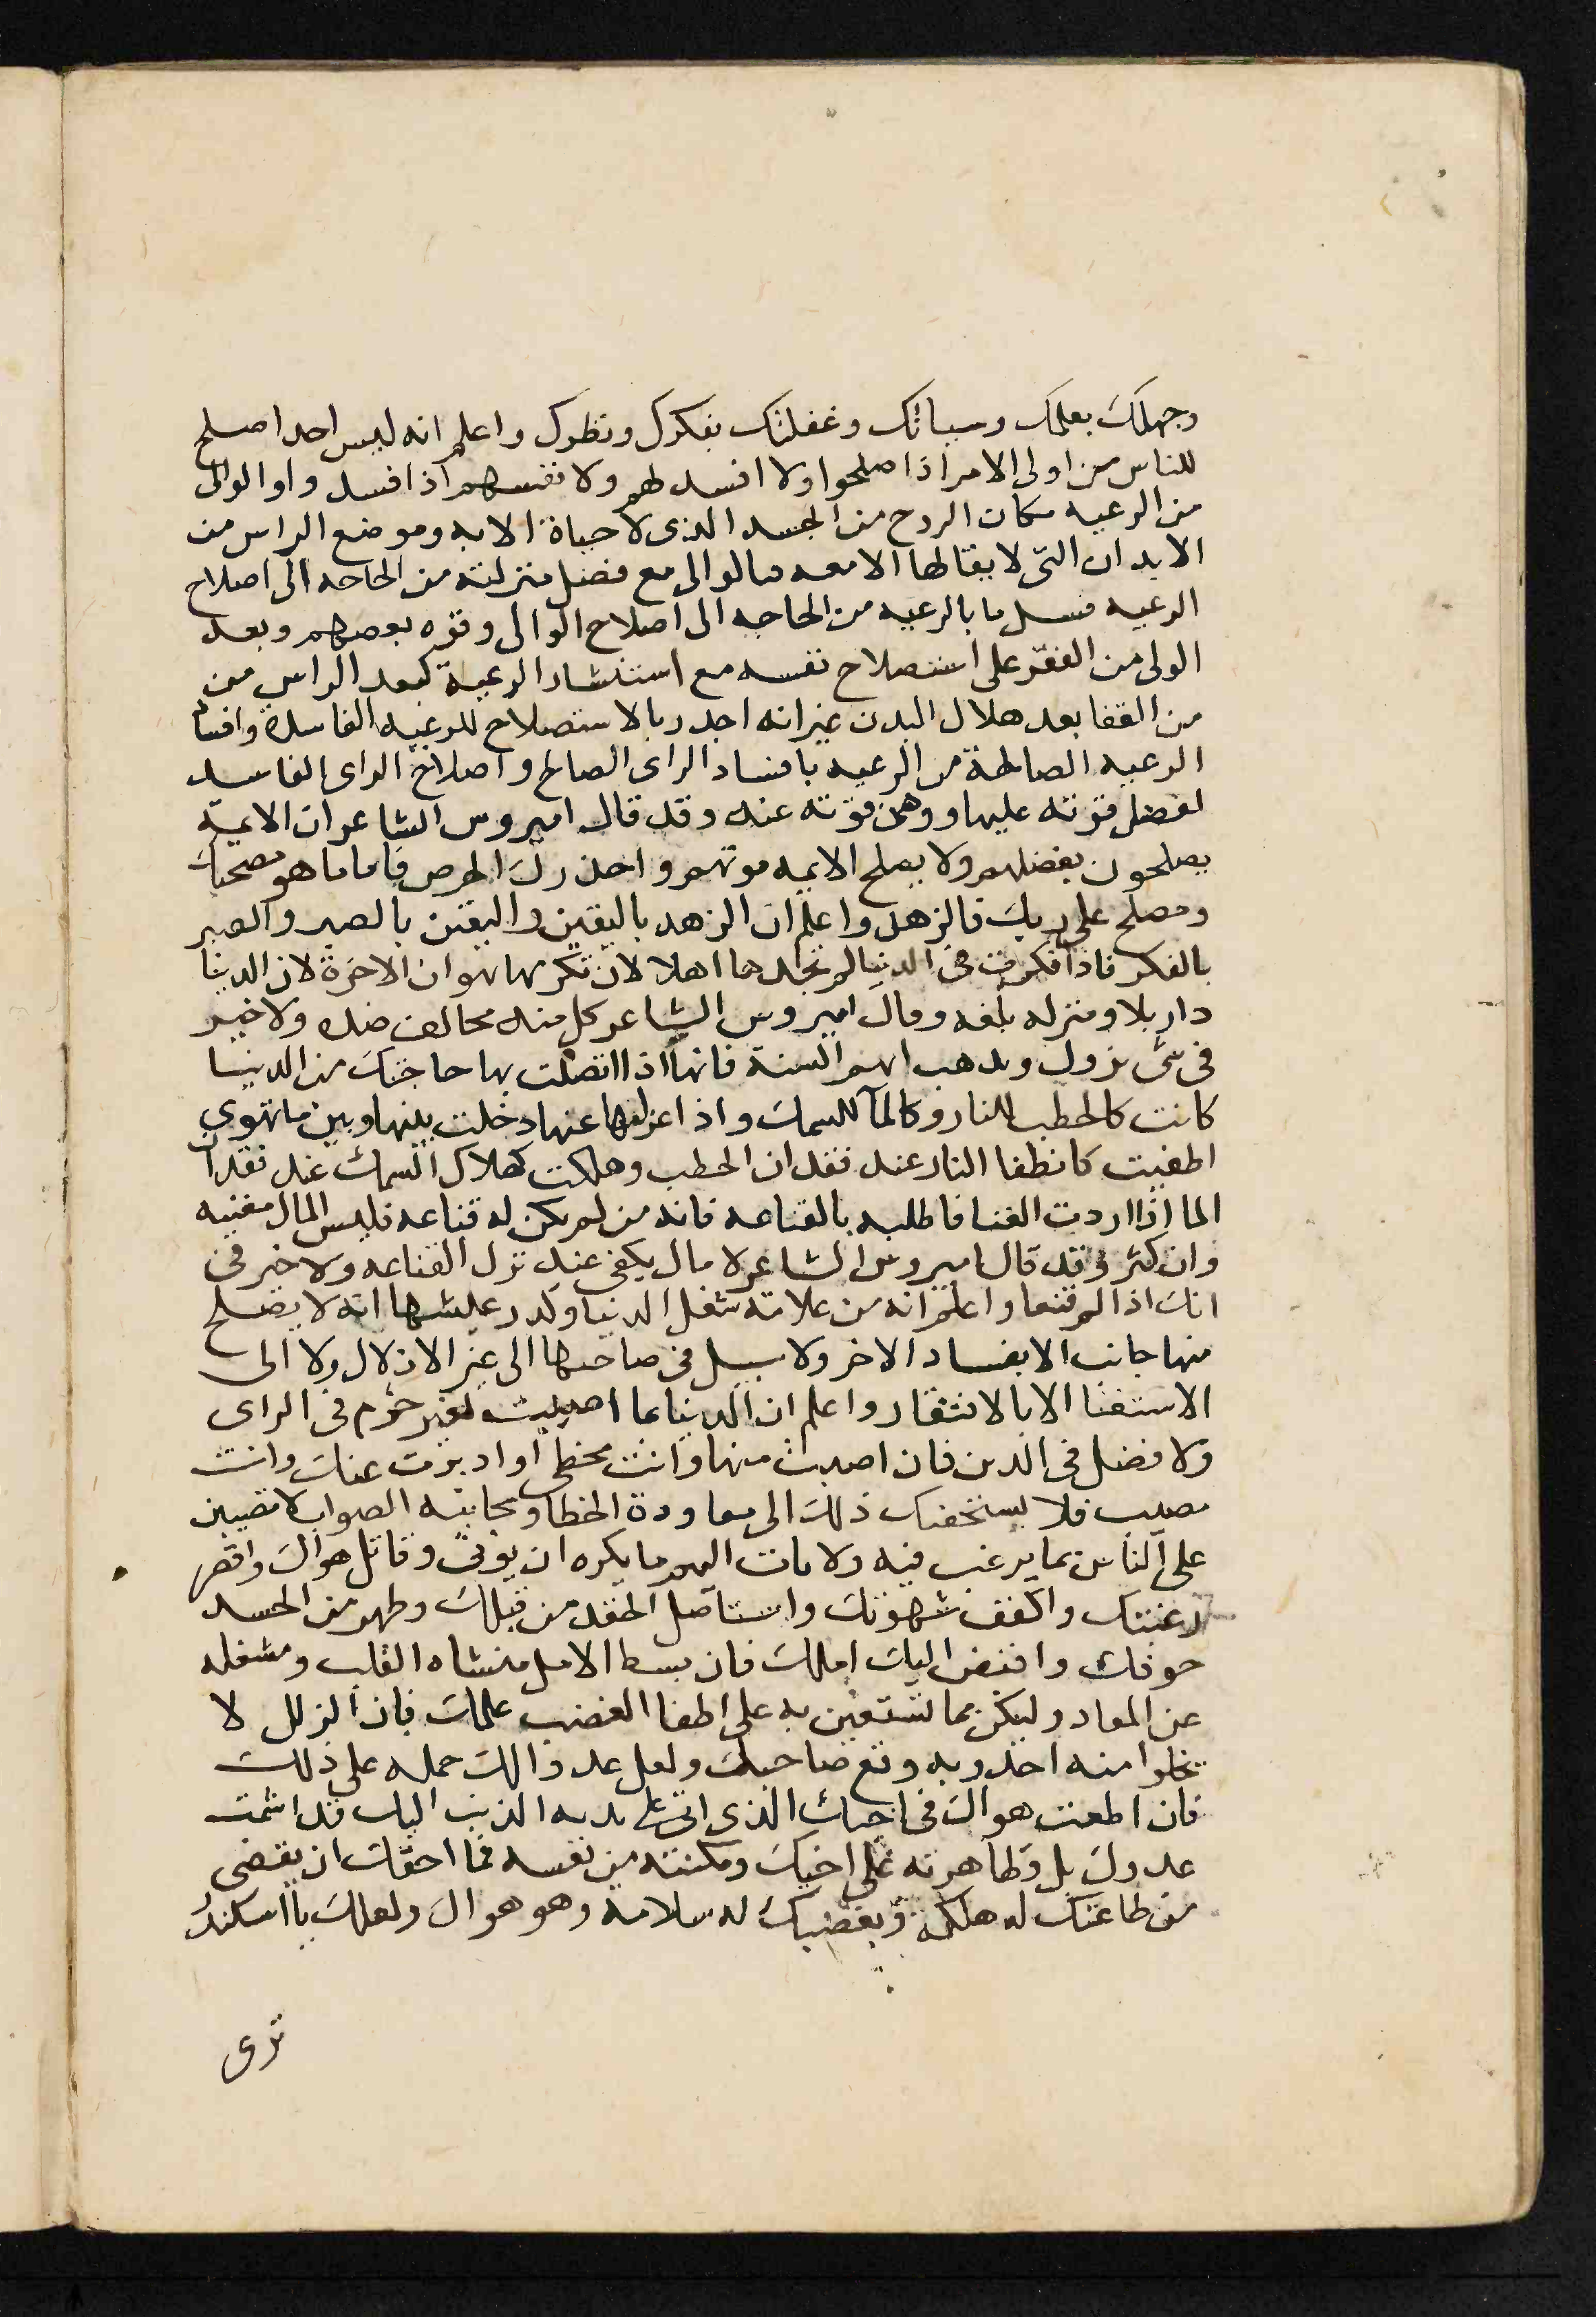 وجهلك بعلمك وسباتك وغفلتك بفكرك ونظرك واعلم انه ليس احد اصلح
للناس من اولى الامر اذا صلحوا ولا افسد لهم ولا نفسهم اذا فسد واو الوالى
من الرعيه مكان الروح من الجسد الذى لا حياة الا به وموضع الراس من
الابدان التى لا بقا لها الا معه فالوالى مع فضل منزلته من الحاجه الى اصلاح
الرعيه مسل ما بالرعيه من الحاجه الى اصلاح الوالى وقوه بعضهم وبعد
الولى من الفقر على استصلاح نفسه مع استنشاد الرعية كبعد الراس من
من القفا بعد هلال البدن غير انه اجدر بالاستصلاح للرعيه الفاسدة وافساد
الرعيه الصالحة من الرعيه بافساد الراى الصالح واصلاح الراى الفاسد
لفضل قوته عليها ووهن قوته عنه وقد قال اميروس الشاعر ان الايمة
يصلحون بفضلهم ولا يصلح الايمه موتهم واحذرك الحرص فاما ما هو مصحك
ومصلح على يديك فالزهد واعلم ان الزهد باليقين واليقين بالصبر والصبر
بالفكر فاذا فكرت فى الدنيا لم تجدها اهلا لان تكرمها بهوان الاخرة لان الدنيا
دار بلا ومنزله بلغه وقال اميروس الشاعر كل منه مخالف ضده ولا خير
فى شى يزول ويذهب اسم السنة فانها اذا اتصلت بها حاجتك من الدنيا
كانت كالحطب للنار وكالمآ للسمك واذا عزلتها عنها دخلت بينها وبين ما تهوي
اطفيت كانطفا النار عند فقدان الحطب وهلكت كهلاك السمك عند فقدان
الما اذا اردت الغنا فاطلبه بالقناعه فانه من لم يكن له قناعه فليس المال مغنيه
وان كثر وقد قال اميروس الشاعر لا مال يكفى عند ترك القناعه ولا خير فى
انك اذا لم قنعا واعلم انه من علامة شغل الدنيا وكدر عيشها انه لا يصلح
منها جانب الا بفساد الاخر ولا سبيل فى صاحبها الى عز الا ذلال ولا الى
الاستغنا الا بالافتقار واعلم ان الدنيا عا اصيبت لغير حزم فى الراى
ولا فضل فى الدين فان اصبت منها وانت مخطى او ادبرت عنك وانت
مصيب فلا يستخفنك ذلك الى معاودة الخطا ومجانبه الصواب لا تضينن
على الناس بما يرغب فيه ولا يات اليهم ما يكره ان يوتى وقاتل هواك واقصر
رغبتك واكفف شهوتك واستاصل الحقد من قبلك وطهر من الحسد
جوفك واقبض اليك املك فان بسط الامل منشاه القلب ومشغله
عن المعاد وليكن بما تستعين به على اطفا الغضب علمك فان الزلل لا
يخلوا منه احد وبه وقع صاحبك ولعل عدوالك حمله على ذلك
فان اطعت هواك فى اخيك الذى اتى على يديه الذنب اليك قد اشمت
عدوك بل وظاهرته على اخيك ومكنته من نفسه فما احقك ان يقضى
من طاعتك له هلكة وبغضبك له سلامة وهو هواك ولعلك يا اسكندر
ترى